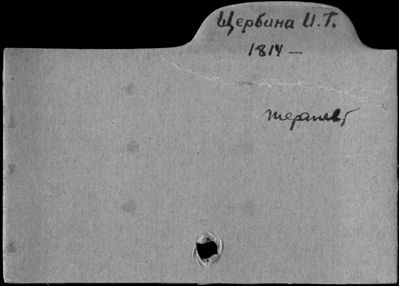 Щербина И. Г.
1814 —
терапевт